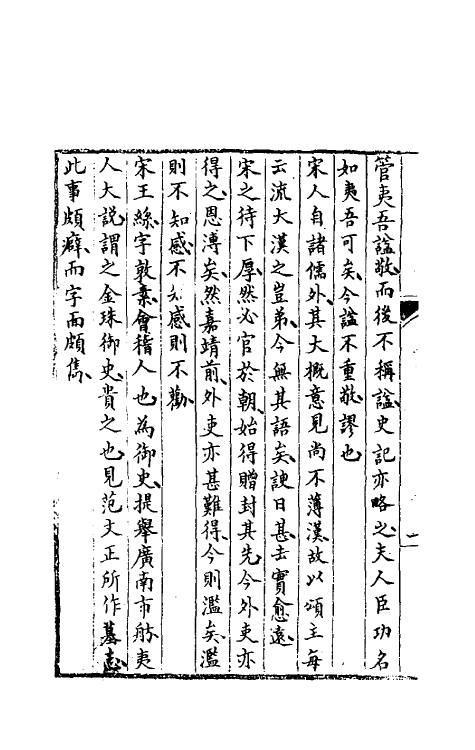 管夷吾諡敬而後不稱諡史記亦略之夫人臣功名
如夷吾可矣今諡不重敬謬也
宋人自諸儒外其大概意見尚不薄漢故以頌主每
云流大漢之豈弟今無其語矣諛日甚去實愈遠
宋之待下厚然必官於朝始得贈封其先今外吏亦
得之恩溥矣然嘉靖前外吏亦甚難得今則濫矣濫
則不知感不知感則不勸
宋王絲字敦素會稽人也為御史提舉廣南市舶夷
人大説謂之金珠御史貴之也見范文正所作墓誌
此事頗癖而字面頗雋